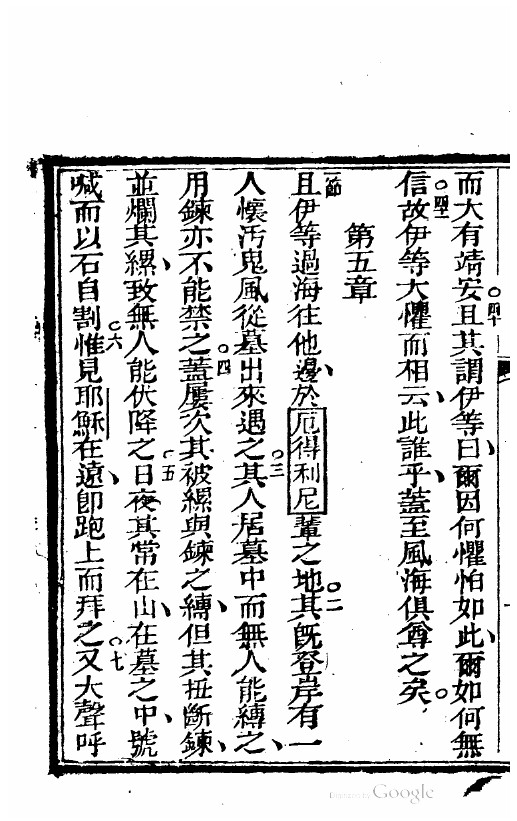 而大有靖安○四十且其謂伊等曰、爾因何懼怕如此、爾如何無
信○四一故伊等大懼而相云、此誰乎、蓋至風海俱尊之矣。
第五章
一節且伊等過海往他邊、於厄得利尼輩之地○二其既登岸有一
人懷汚鬼風從墓出來遇之○三其人居墓中而無人能縛之、
用鍊亦不能禁之○四蓋屢次其被縲與鍊之縛、但其扭斷鍊、
並爛其縲、致無人能伏降之○五日夜其常在山、在墓之中、號
喊而以石自割○六惟見耶穌在遠、卽跑上而拜之○七又大聲呼
Digitized by Google